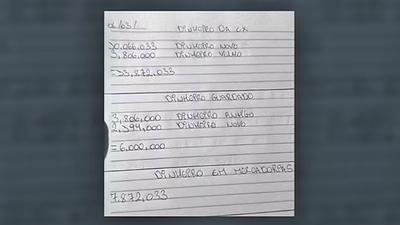 DINHEIRO DA CX
10,066,033 DINHEIRO NOVO
3,806,000 DINHEIRO VELHO
=13,872,033
DINHEIRO GUARDADO
3,806,000 DINHEIRO ANTIGO
2,194,000 DINHEIRO NOVO
=6,000,000
DINHEIRO EM MERCADORIAS
7,872,033